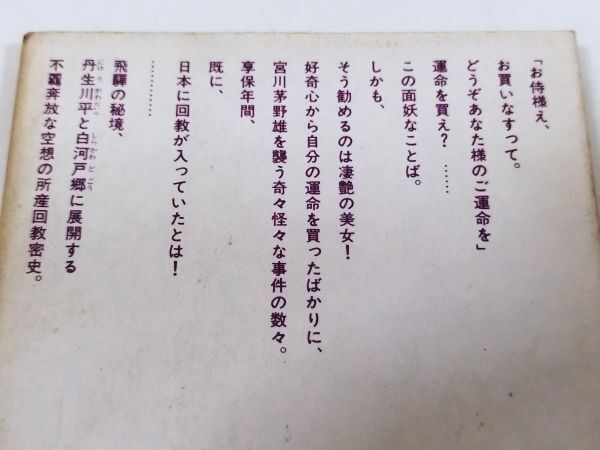 「お侍様え、
お買いなすって。
どうぞあなた様のご運命を」
運命を買え？……
この面妖なことば。
しかも、
そう勧めるのは凄艶の美女！
好奇心から自分の運命を買ったばかりに、
宮川茅野雄を襲う奇々怪々な事件の数々。
享保年間、
既に、
日本に回教が入っていたとは！
…………
飛騨の秘境、
丹生川平と白河戸郷に展開する
不羈奔放な空想の所産回教密史。